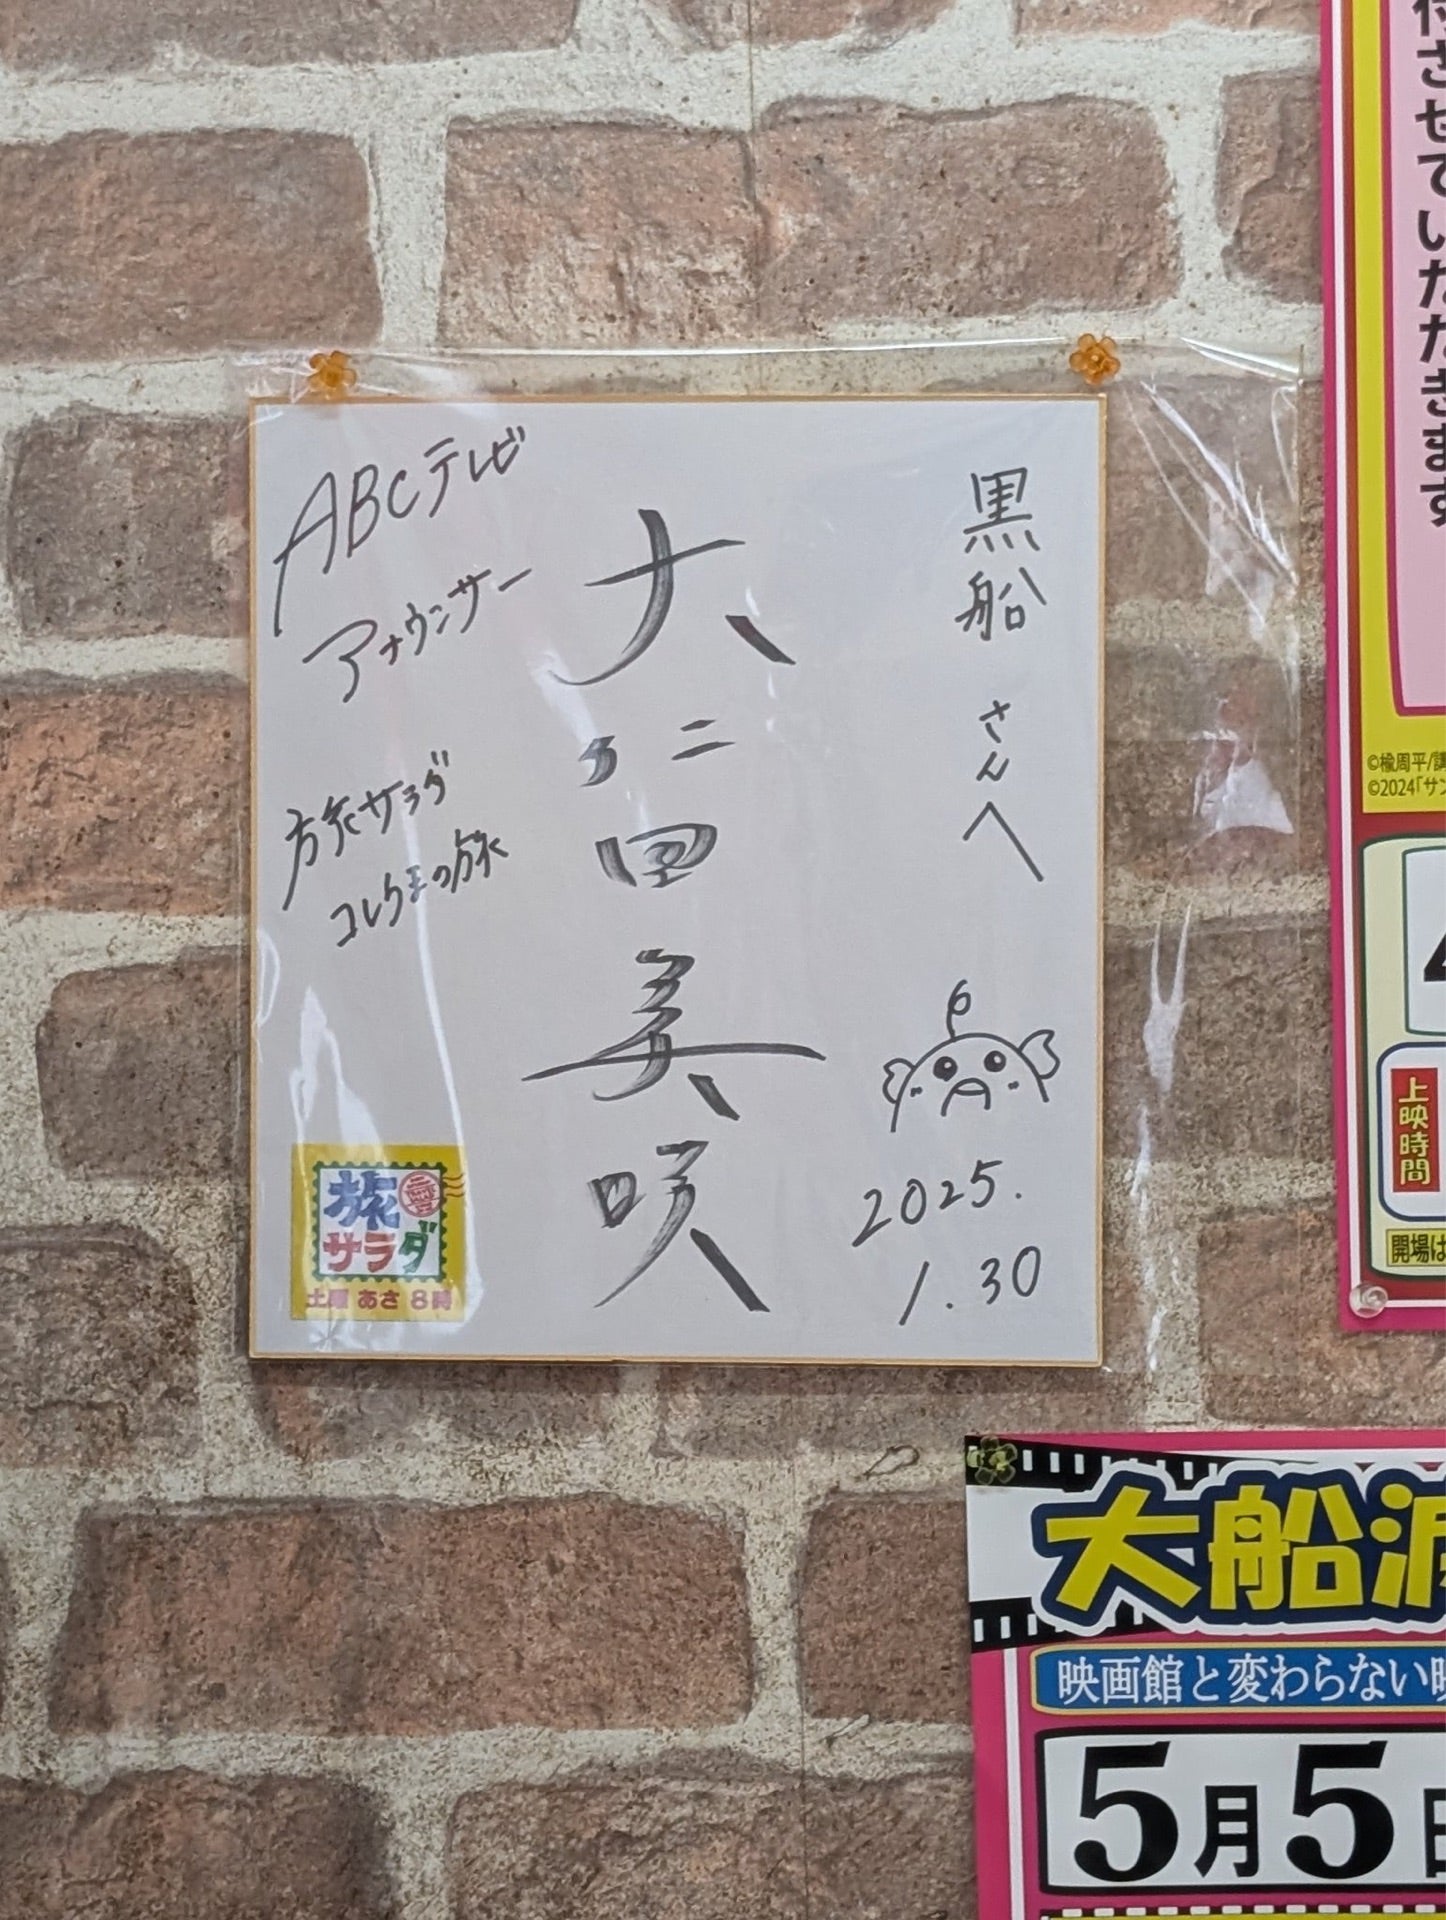 黒船さんへ
大仁田美咲
ABCテレビ
アナウンサー
旅サラダ
コレうまの旅
2025.
1.30
旅
サラダ
土曜 あさ 8時
付させていただきます
©楡周平/講
©2024「サン
上映時間
開場は
大船渡
映画館と変わらない映
5月5日